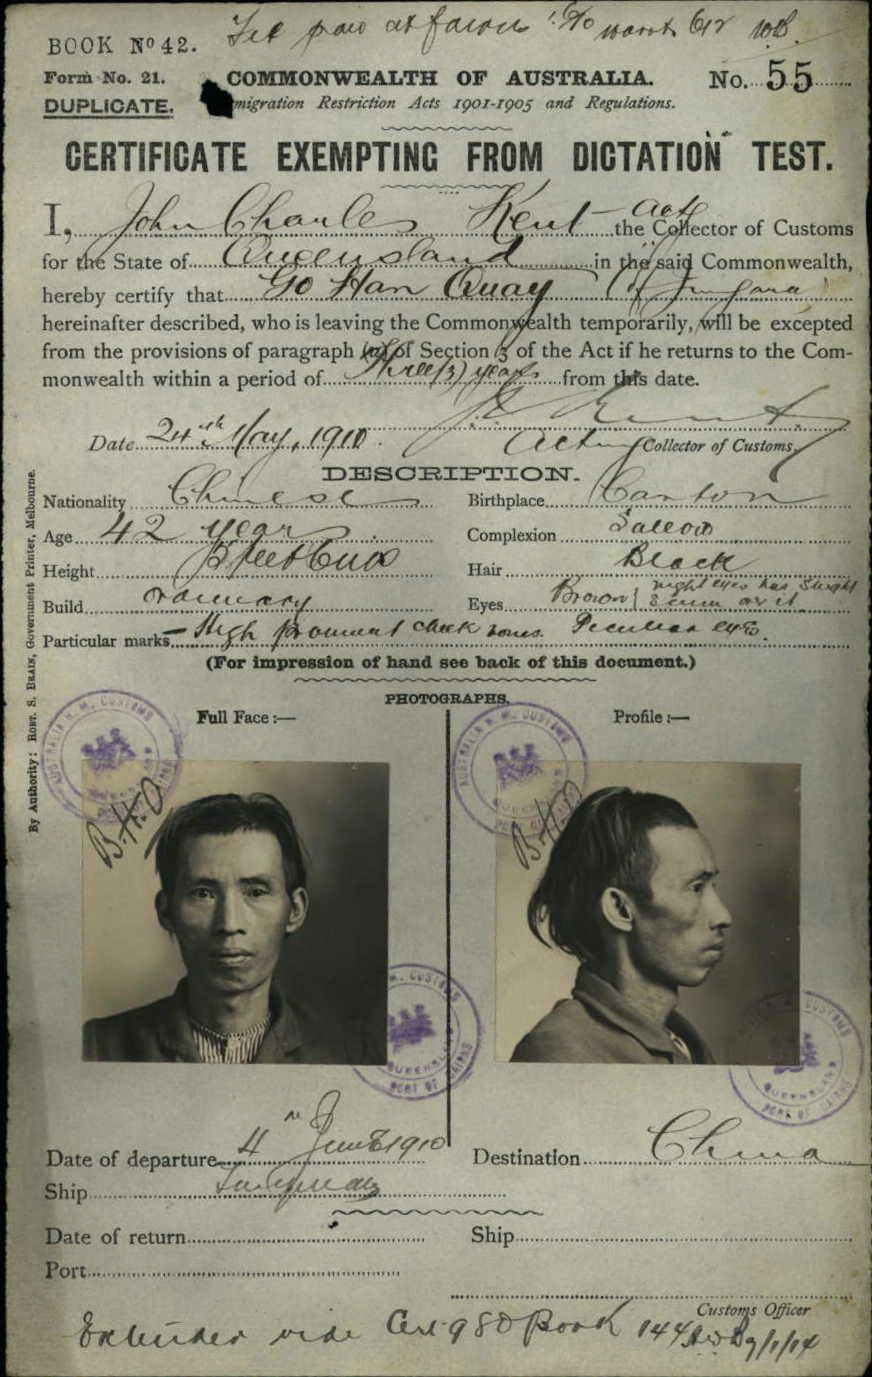 BOOK Nº 42. Fee paid at
Form No. 21. COMMONWEALTH OF AUSTRALIA. No. 55
DUPLICATE. migration Restriction Acts 1901-1905 and Regulations.
CERTIFICATE EXEMPTING FROM DICTATION TEST.
I, John Charles Kent Actg the Collector of Customs
for the State of Queensland in the said Commonwealth,
hereby certify that Go Han Quay (of
hereinafter described, who is leaving the Commonwealth temporarily, will be excepted
from the provisions of paragraph (a) of Section 3 of the Act if he returns to the Com-
monwealth within a period of Three (3) years from this date.
Date 24th May, 1910. J. C. Kent
Acting Collector of Customs.
DESCRIPTION.
Nationality Chinese Birthplace Canton
Age 42 years Complexion Sallow
Height 5 feet 6 ins Hair Black
Build Ordinary Eyes Brown right eye has slight
Particular marks High prominent cheek bones. Peculiar eyes.
(For impression of hand see back of this document.)
PHOTOGRAPHS.
Full Face :— Profile :—
B.H.O
B.H.O
Date of departure 4 June 1910 Destination China
Ship
Date of return Ship
Port
Customs Officer
Extended vide Cert 980 Book 144 9/1/14
By Authority: ROBT. S. BRAIN, Government Printer, Melbourne.